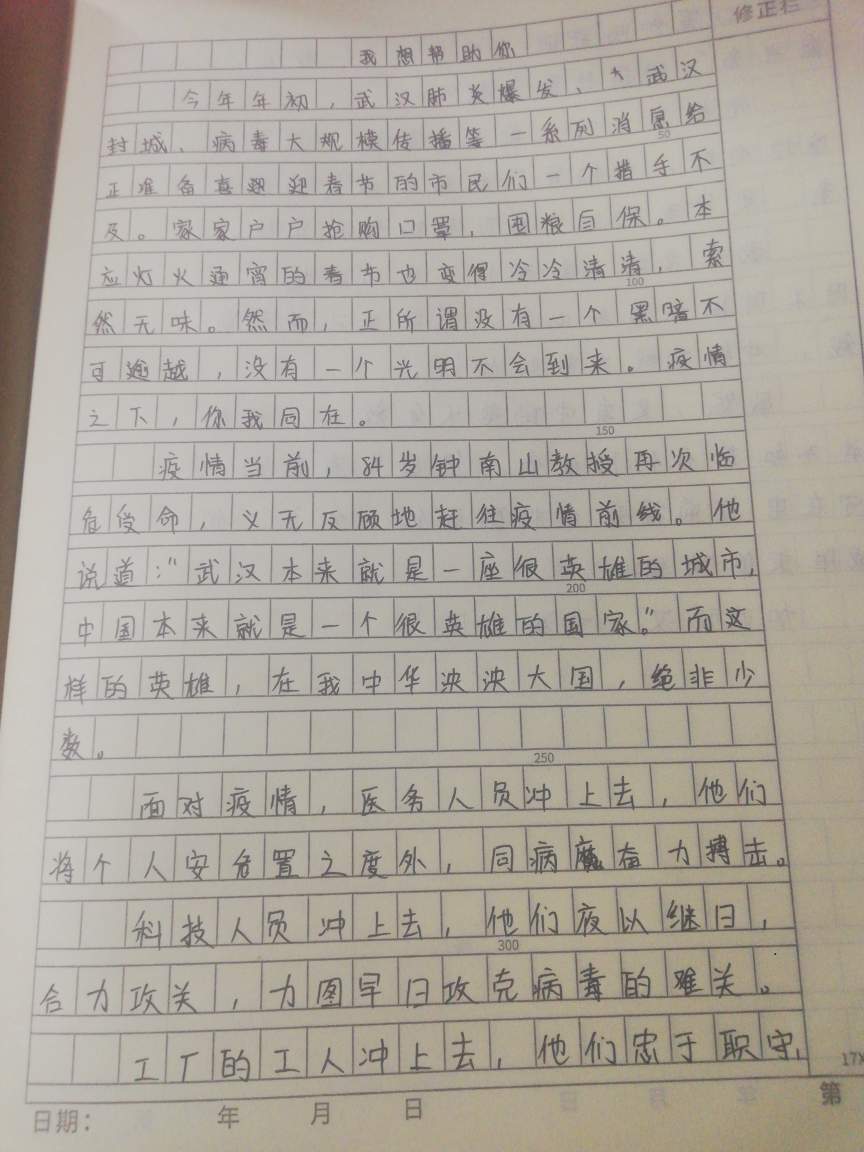 修正栏
我想帮助你
今年年初，武汉肺炎爆发、大武汉
封城、病毒大规模传播等一系列消息给
50
正准备喜迎迎春节的市民们一个措手不
及。家家户户抢购口罩，囤粮自保。本
应灯火通宵的春节也变得冷冷清清，索
100
然无味。然而，正所谓没有一个黑暗不
可逾越，没有一个光明不会到来。疫情
之下，你我同在。
150
疫情当前，84岁钟南山教授再次临
危受命，义无反顾地赶往疫情前线。他
说道："武汉本来就是一座很英雄的城市，
200
中国本来就是一个很英雄的国家。"而这
样的英雄，在我中华泱泱大国，绝非少
数。
250
面对疫情，医务人员冲上去，他们
将个人安危置之度外，同病魔奋力搏击。
科技人员冲上去，他们夜以继日，
300
合力攻关，力图早日攻克病毒的难关。
工厂的工人冲上去，他们忠于职守，
17X
日期： 年 月 日 第